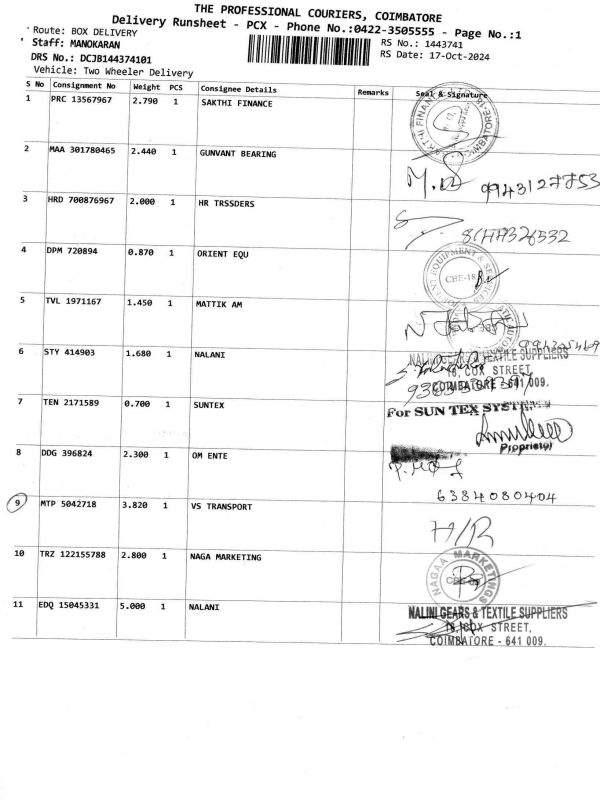 THE PROFESSIONAL COURIERS, COIMBATORE
Delivery Runsheet - PCX - Phone No.:0422-3505555 - Page No.:1
Route: BOX DELIVERY
Staff: MANOKARAN
RS No.: 1443741
DRS No.: DCJB144374101
RS Date: 17-Oct-2024
Vehicle: Two Wheeler Delivery
S No Consignment No Weight PCS Consignee Details Remarks Seal & Signature
1 PRC 13567967 2.790 1 SAKTHI FINANCE
2 MAA 301780465 2.440 1 GUNVANT BEARING
M.
3 HRD 700876967 2.000 1 HR TRSSDERS
4 DPM 720894 0.870 1 ORIENT EQU
EQUIPMENT &
CBE-18
5 TVL 1971167 1.450 1 MATTIK AM
6 STY 414903 1.680 1 NALANI
NALINI GEARS & TEXTILE SUPPLIERS
16, COX STREET,
COIMBATORE - 641 009.
7 TEN 2171589 0.700 1 SUNTEX
For SUN TEX
Proprietor
8 DDG 396824 2.300 1 OM ENTE
6384080404
9 MTP 5042718 3.820 1 VS TRANSPORT
H/R
10 TRZ 122155788 2.800 1 NAGA MARKETING
NAGAA MARKETINGS
11 EDQ 15045331 5.000 1 NALANI
NALINI GEARS & TEXTILE SUPPLIERS
16, COX STREET,
COIMBATORE - 641 009.